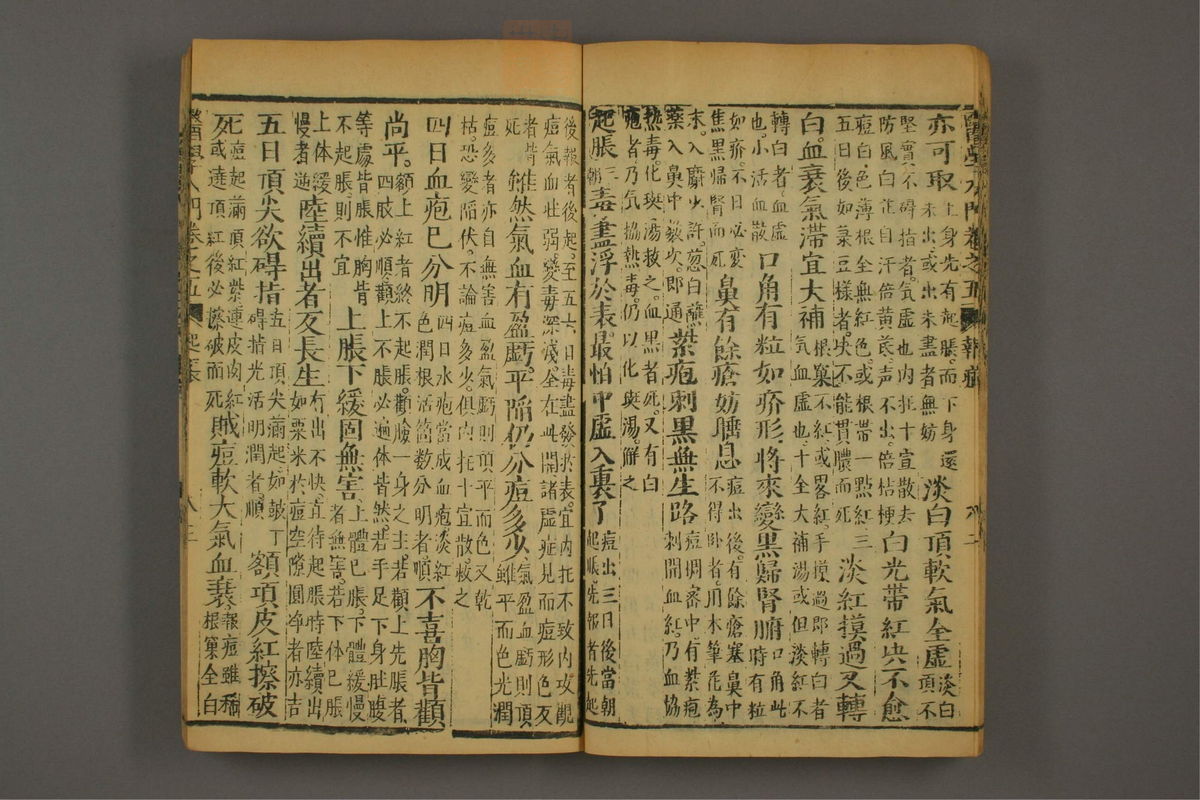 亦可取上身先有起脹而下身還未出或出未盡者無妨淡白頂軟氣全虛淡白頂不
堅實不碍指者氣虛也內托十宣散去防風白芷自汗倍黃芪声不出倍桔梗白光帶紅决不愈
痘白色薄根全無紅色或根帶一點紅三五日後如菉豆樣者决不能貫膿而死淡紅摸過又轉
白血衰氣滯宜大補根窠不紅或畧紅手摸過即轉白者氣血虛也十全大補湯或但淡紅不
轉白者血虛也小活血散口角有粒如疥形將來變黑歸腎腑口角此時有粒
如疥不日必變焦黑歸腎而死鼻有餘瘡妨膧息痘出後有餘瘡塞鼻中不得卧者用木筆花為
末入麝少許葱白蘸藥入鼻中數次即通紫疱刺黑無生路痘稠密中有紫疱刺開血紅乃血協
熱毒化斑湯救之血黑者死又有白疱者乃氣協熱毒仍以化斑湯解之
起脹三朝毒盡浮於表最怕中虛入裏了痘出三日後當朝起脹先報者先起
後報者後起至五六日毒盡發於表宜內托不致內攻觀痘氣血壯弱變毒深淺全在此開諸虛症見而痘形色反
死者皆雖然氣血有盈虧平陷仍分痘多少氣盈血虧則頂雖平而色光潤
痘多者亦自無害血盈氣虧則頂平而色又乾枯恐變陷伏不論痘多少俱內托十宣散救之
四日血疱已分明四日水疱當成血疱淡紅色潤根活箇數分明者順不喜胸背顴
尚平額上紅者終不起脹顴臉一身之主若顴上先脹者四肢必順顴上不脹必遍体皆然若手足下身肚腹
等處皆脹惟胸背不起脹則不宜上脹下緩固無害上體已脹下體緩慢者無害若下体已脹
上体緩慢者逆陸續出者反長生有出不快直待起脹時陸續出如粟米於痘空隙圓淨者亦吉
五日頂尖欲碍指五日頂尖滿起如皷丁碍指光活明潤者順額項皮紅擦破
死痘起滿頂紅紫連皮肉紅死或違頂紅後必擦破而死賊痘軟大氣血衰報痘雖稱根窠全白